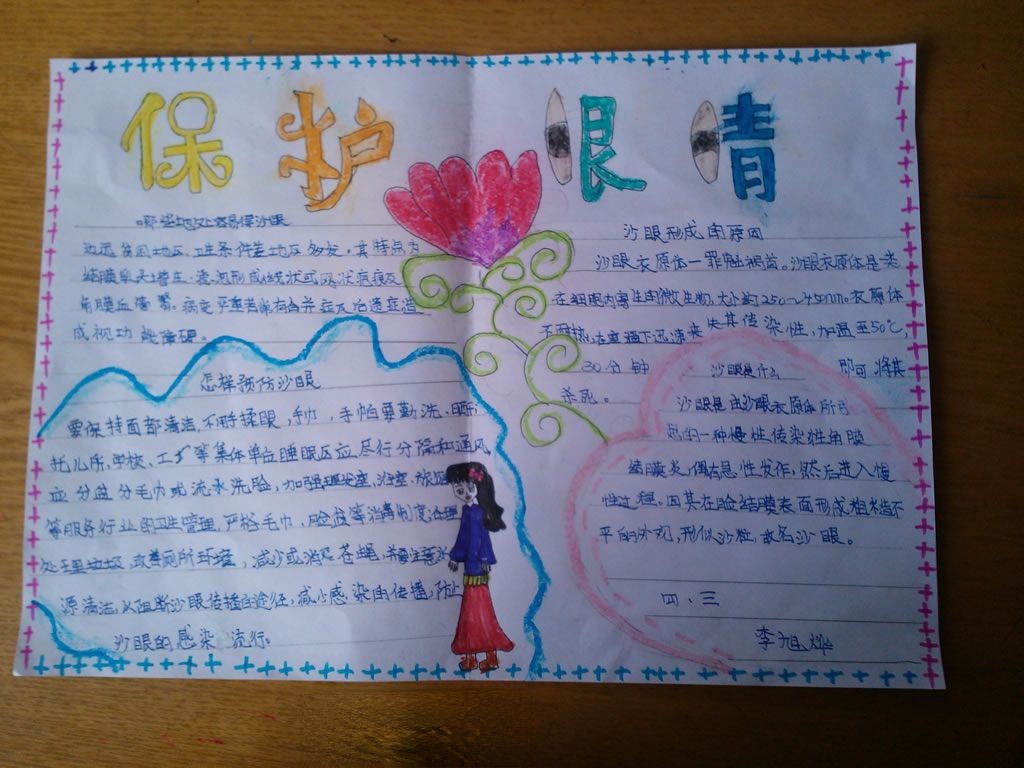 保护眼睛
哪些地处容易得沙眼
边远贫困地区、卫生条件差地区多发，其特点为
结膜乳头增生、滤泡形成线状或网状疤痕及
角膜血管翳。病变严重者常有合并症及后遗症造
成视功能障碍。
怎样预防沙眼
要保持面部清洁，不用手揉眼，手巾，手帕要勤洗、晒
托儿所，学校、工厂等集体单位睡眠区应尽行分隔和通风
应分盆分毛巾或流水洗脸，加强理发室，浴室，旅
等服务行业的卫生管理，严格毛巾，脸盆等消毒制度，合理
处理垃圾，改善厕所环境，减少或消灭苍蝇，并注意水
源清洁，从阻断沙眼传播的途径，减少感染的传播，防止
沙眼的感染 流行。
沙眼形成的原因
沙眼衣原体—罪魁祸首。沙眼衣原体是类
在细胞内寄生的微生物，大小约250～450nm。衣原体
不耐热，在室温下迅速丧失其传染性，加温至50℃，
30分钟 即可将其
杀死。
沙眼是什么
沙眼是由沙眼衣原体所引
起的一种慢性传染性角膜
结膜炎，偶有急性发作，然后进入慢
性过程。因其在睑结膜表面形成粗糙不
平的外观，形似沙粒，故名沙眼。
四、三
李旭烨